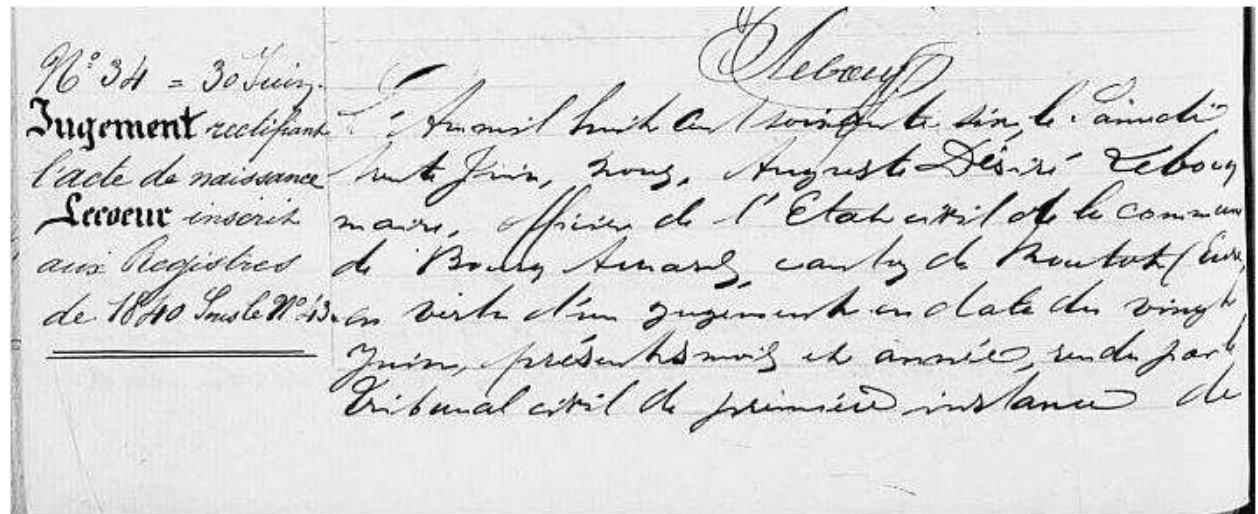 Lebocq
N° 34 = 30 Juin.
Jugement rectifiant
l'acte de naissance
Lecoeur inscrit
aux Registres
de 1840 Sous le N° 43.
L'An mil huit cent soixante six, le Samedi
trente Juin, nous, Auguste Désiré Lebocq
maire, officier de l'Etat civil de la commune
de Bourg Achard, canton de Routot (Eure,
en vertu d'un jugement en date du vingt
Juin, présents mois et année, rendu par le
Tribunal civil de première instance de